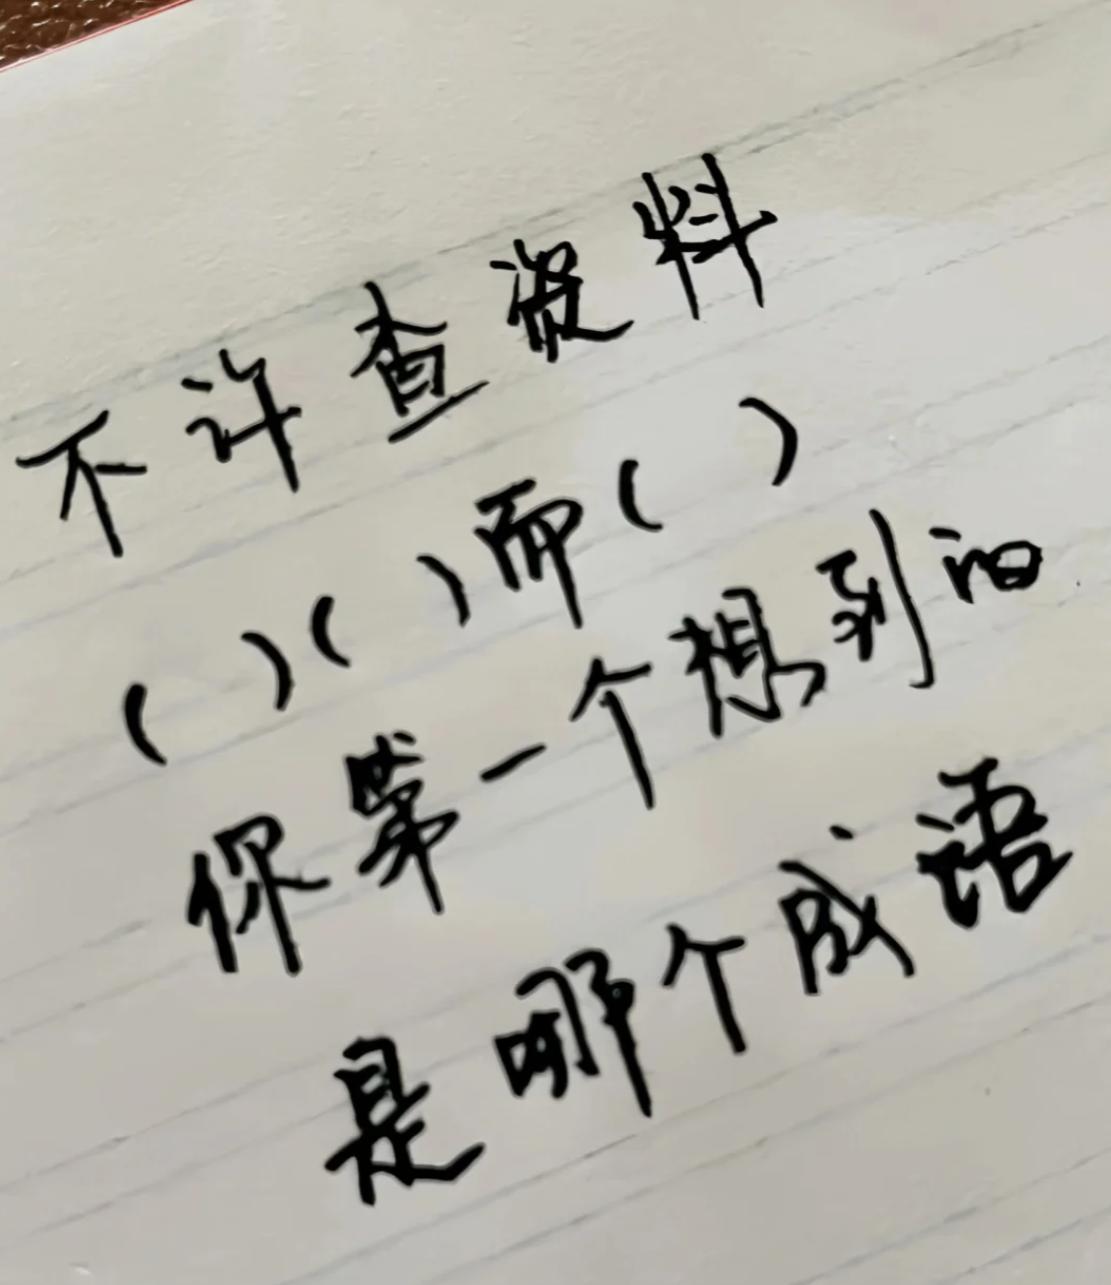 不许查资料
( )( )而( )
你第一个想到的
是哪个成语